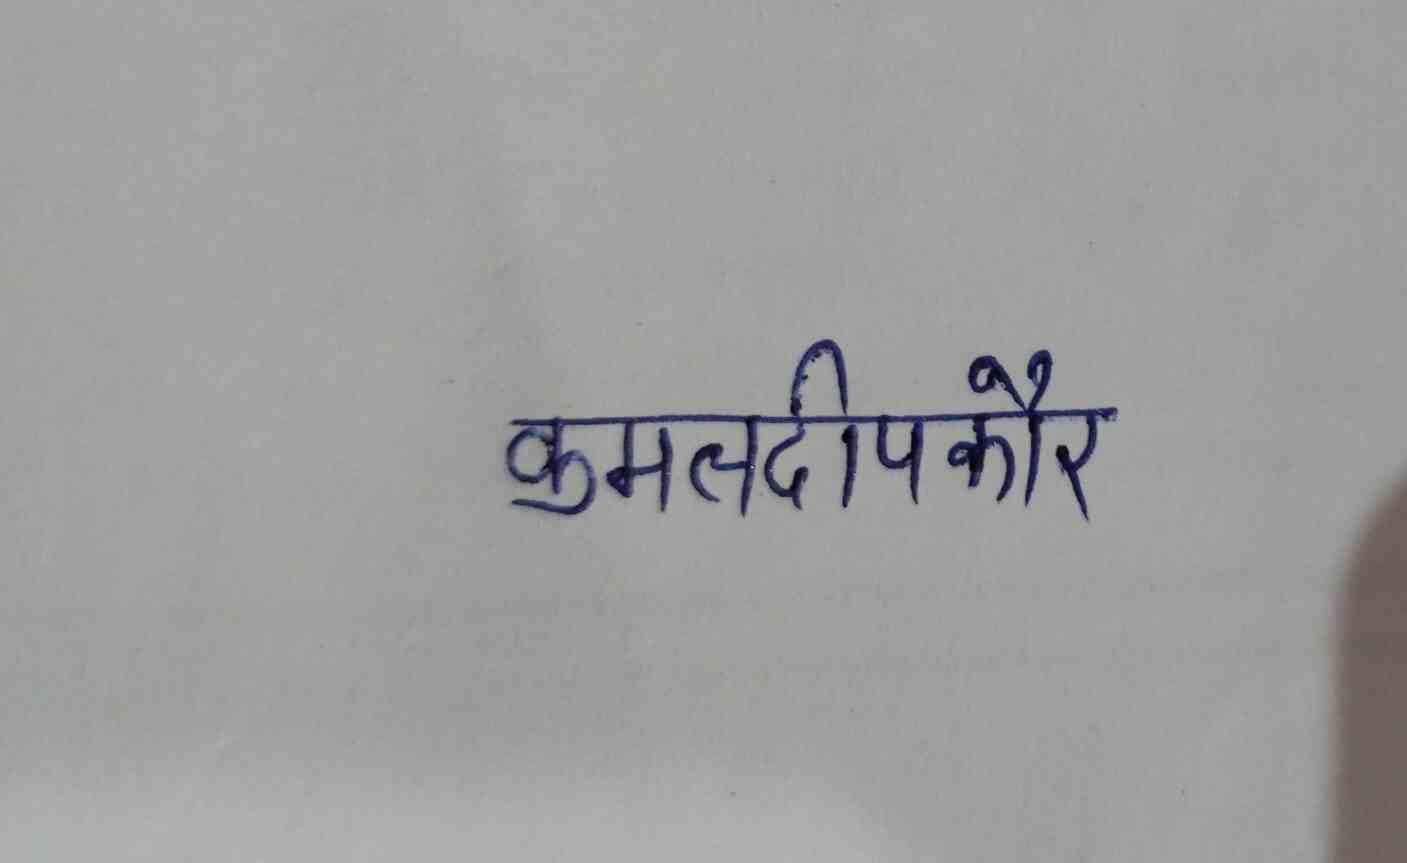 कुमलदीप कौर